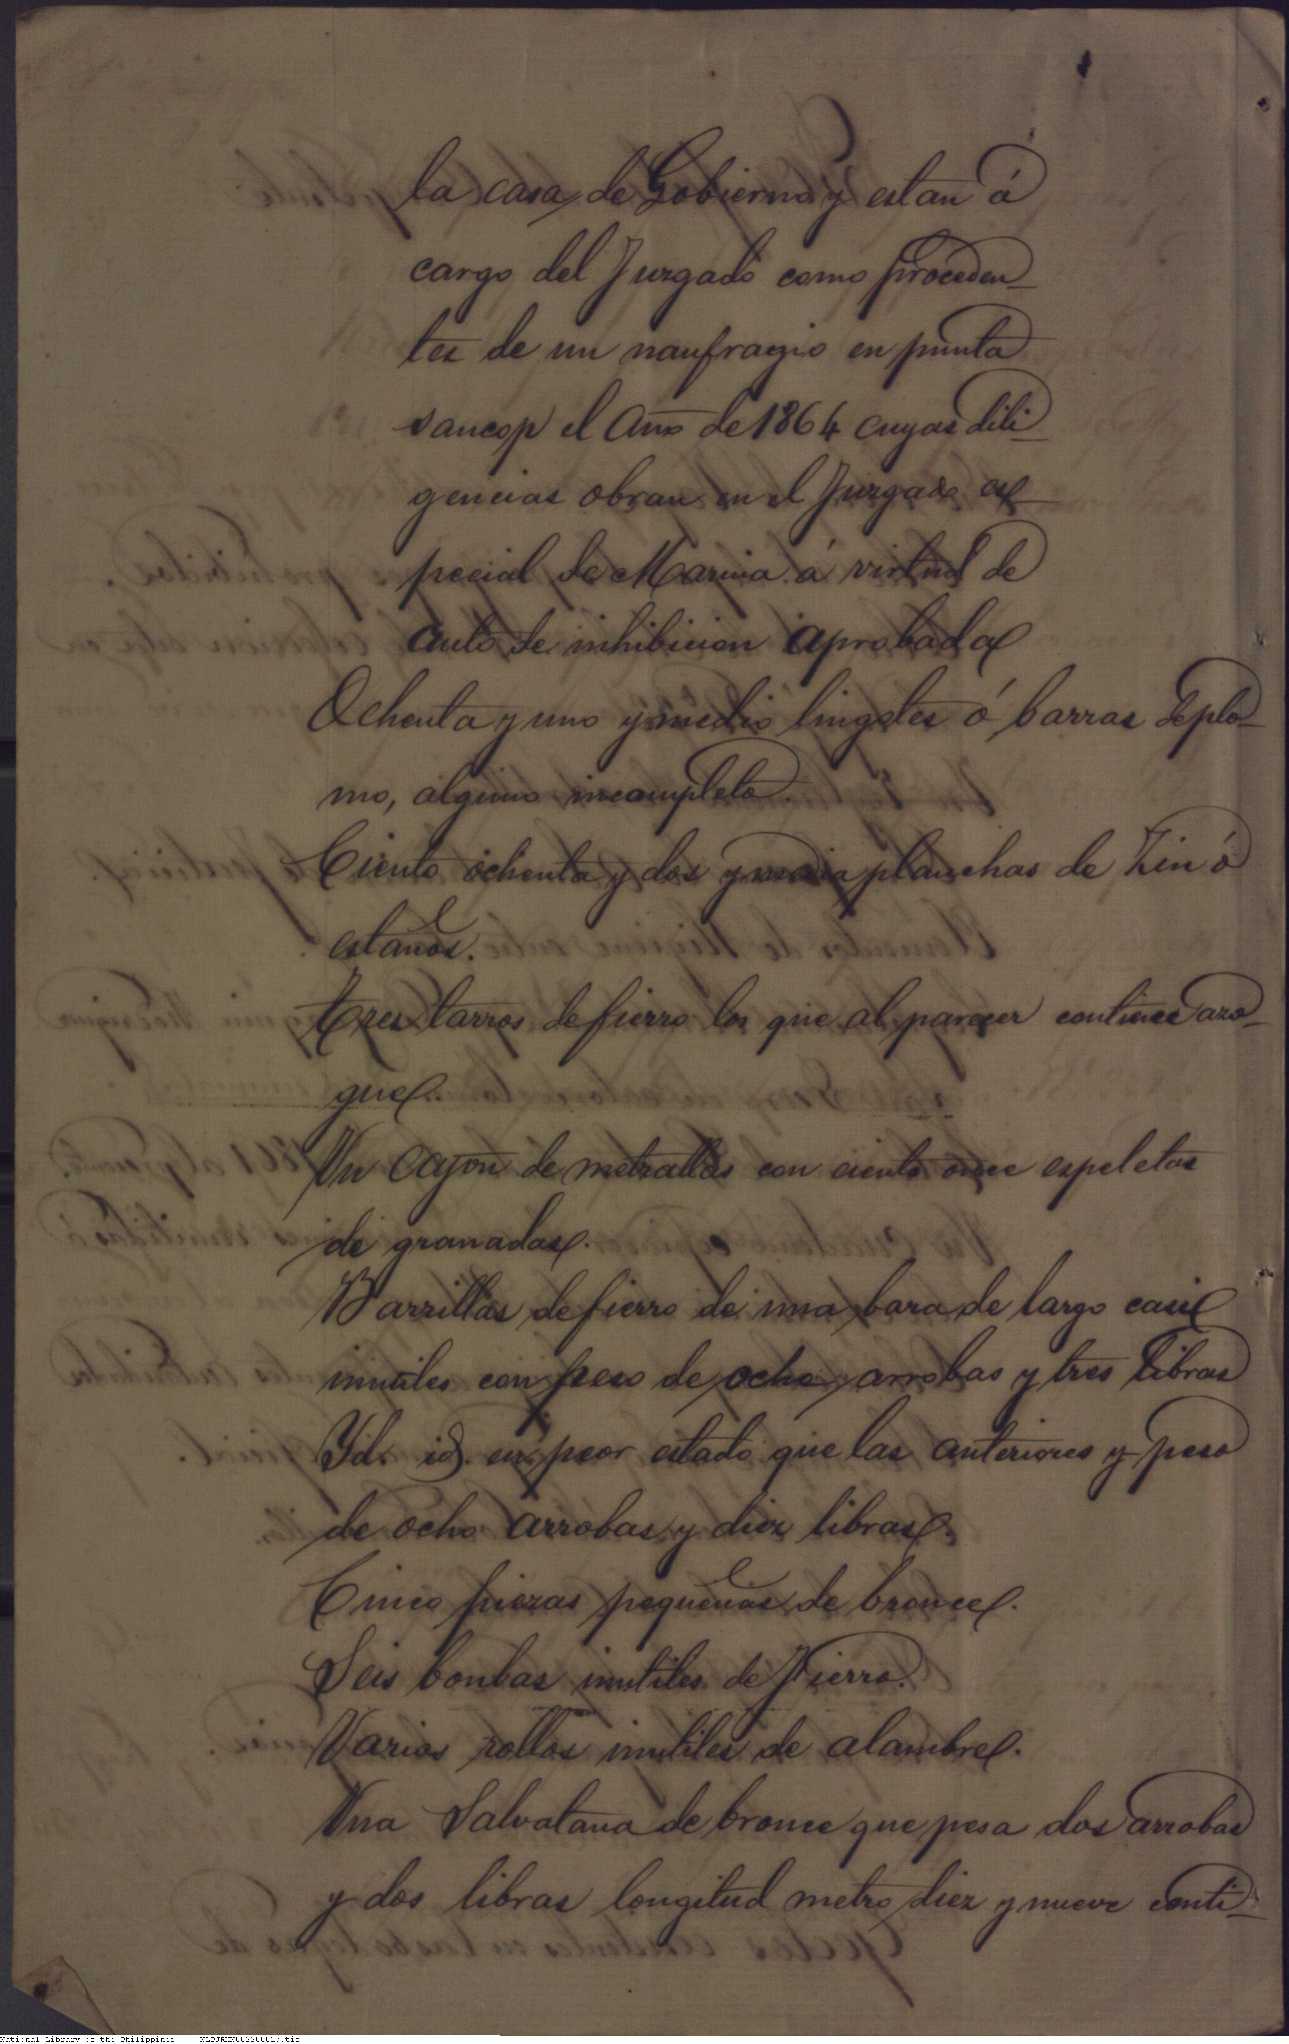 la casa de Gobierno y estan á
cargo del Juzgado como proceden-
tes de un naufragio en punta
sancop el año de 1864 cuyas dili-
gencias obran en el Juzgado es-
pecial de Marina á virtud de
auto de inhibicion aprobada
Ochenta y uno y medio lingotes ó barras de plo-
mo, alguno incompleto.
Ciento ochenta y dos y media planchas de Zin ó
estaños.
Tres tarros de fierro los que al parecer contiene azo-
gue.
Un cajon de metrallas con ciento once espeletas
de granadas.
Barrillas de fierro de una bara de largo casi
inutiles con peso de ocho arrobas y tres libras
Yd. id. en peor estado que las anteriores y peso
de ocho arrobas y diez libras.
Cinco piezas pequeñas de bronce.
Seis bonbas inutiles de Fierro.
Varios rollos inutiles de alambre.
Una Salvatana de bronce que pesa dos arrobas
y dos libras longitud metro diez y nueve centi-
National Library of the Philippines